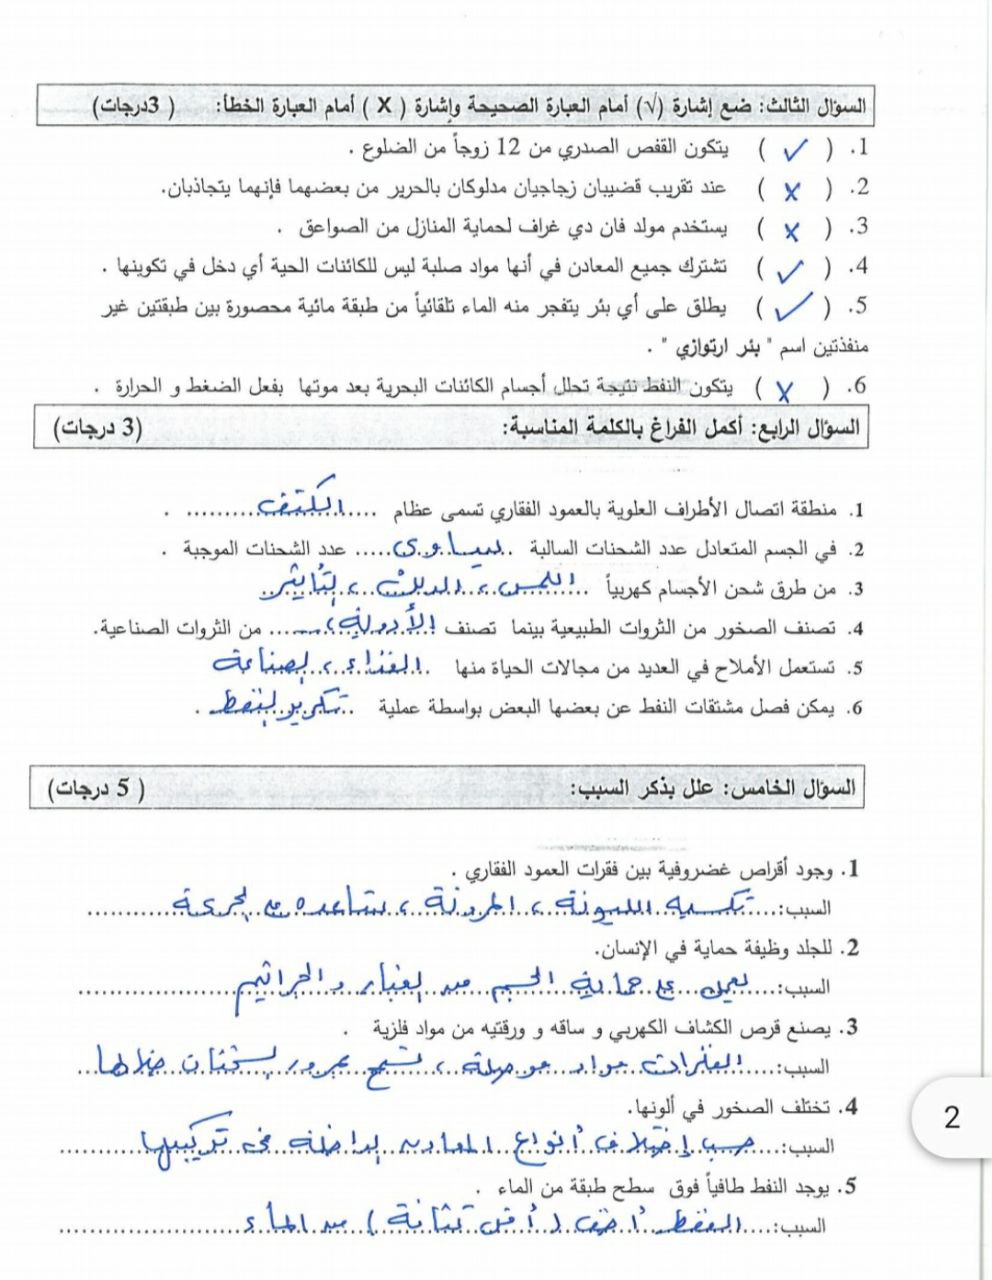 السؤال الثالث: ضع إشارة (√) أمام العبارة الصحيحة وإشارة ( X ) أمام العبارة الخطأ: ( 3درجات)
1. ( ✓ ) يتكون القفص الصدري من 12 زوجاً من الضلوع .
2. ( x ) عند تقريب قضيبان زجاجيان مدلوكان بالحرير من بعضهما فإنهما يتجاذبان.
3. ( x ) يستخدم مولد فان دي غراف لحماية المنازل من الصواعق .
4. ( ✓ ) تشترك جميع المعادن في أنها مواد صلبة ليس للكائنات الحية أي دخل في تكوينها .
5. ( ✓ ) يطلق على أي بئر يتفجر منه الماء تلقائياً من طبقة مائية محصورة بين طبقتين غير
منفذتين اسم " بئر ارتوازي " .
6. ( x ) يتكون النفط نتيجة تحلل أجسام الكائنات البحرية بعد موتها بفعل الضغط و الحرارة .
السؤال الرابع: أكمل الفراغ بالكلمة المناسبة: (3 درجات)
1. منطقة اتصال الأطراف العلوية بالعمود الفقاري تسمى عظام ....الكتف.... .
2. في الجسم المتعادل عدد الشحنات السالبة ..يساوي.... عدد الشحنات الموجبة .
3. من طرق شحن الأجسام كهربياً ....اللمس ، الدلك ، التأثير
4. تصنف الصخور من الثروات الطبيعية بينما تصنف الأدوية.... من الثروات الصناعية.
5. تستعمل الأملاح في العديد من مجالات الحياة منها ..الغذاء ، الصناعة
6. يمكن فصل مشتقات النفط عن بعضها البعض بواسطة عملية ..تكرير النفط.. .
السؤال الخامس: علل بذكر السبب: ( 5 درجات)
1. وجود أقراص غضروفية بين فقرات العمود الفقاري .
السبب:....تكسبه الليونة ، المرونة ، تساعده على الحركة....
2. للجلد وظيفة حماية في الإنسان.
السبب:....يعمل على حماية الجسم من الغبار والجراثيم....
3. يصنع قرص الكشاف الكهربي و ساقه و ورقتيه من مواد فلزية .
السبب:....الفلزات مواد موصلة ، تسمح بمرور الشحنات خلالها..
4. تختلف الصخور في ألونها.
السبب:....حسب إختلاف أنواع المعادن الداخلة في تركيبها....
5. يوجد النفط طافياً فوق سطح طبقة من الماء .
السبب:....النفط أخف (أقل كثافة) من الماء....
2